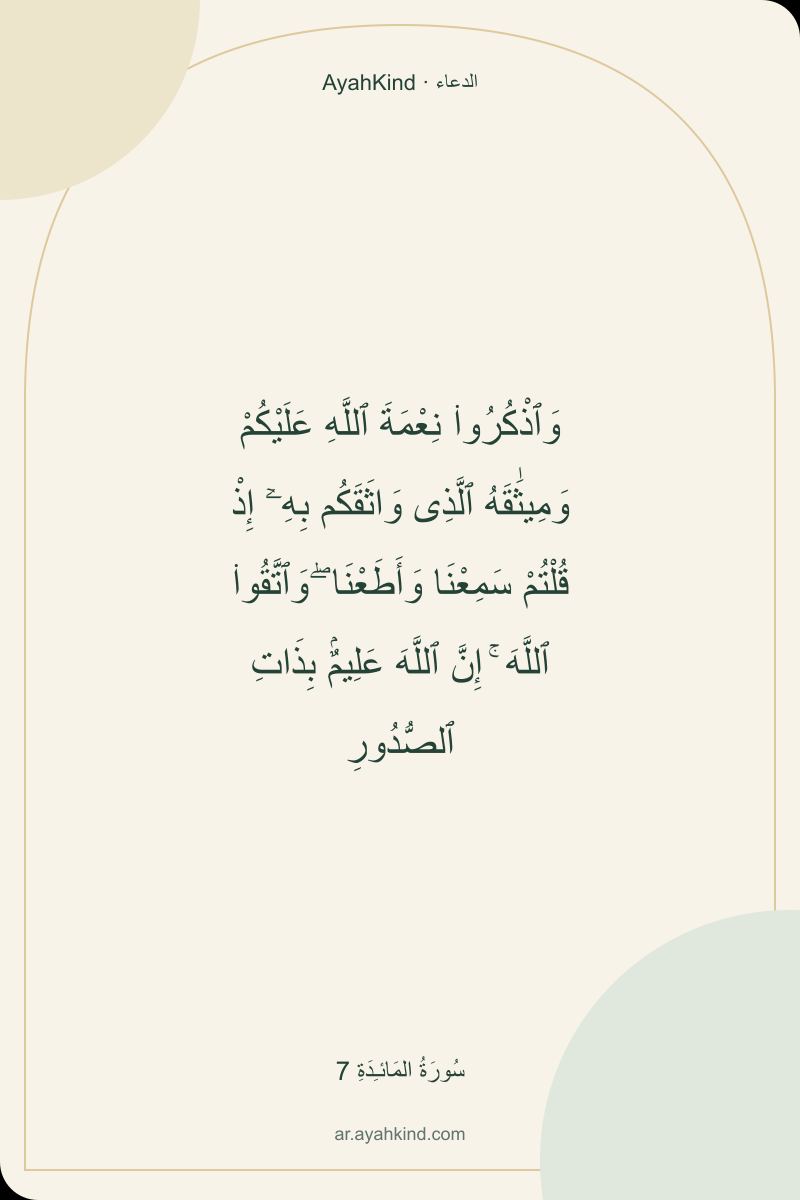 AyahKind · الدعاء
وَٱذْكُرُوا۟ نِعْمَةَ ٱللَّهِ عَلَيْكُمْ
وَمِيثَٰقَهُ ٱلَّذِى وَاثَقَكُم بِهِۦٓ إِذْ
قُلْتُمْ سَمِعْنَا وَأَطَعْنَا ۖ وَٱتَّقُوا۟
ٱللَّهَ ۚ إِنَّ ٱللَّهَ عَلِيمٌۢ بِذَاتِ
ٱلصُّدُورِ
سُورَةُ المَائـِدَةِ 7
ar.ayahkind.com